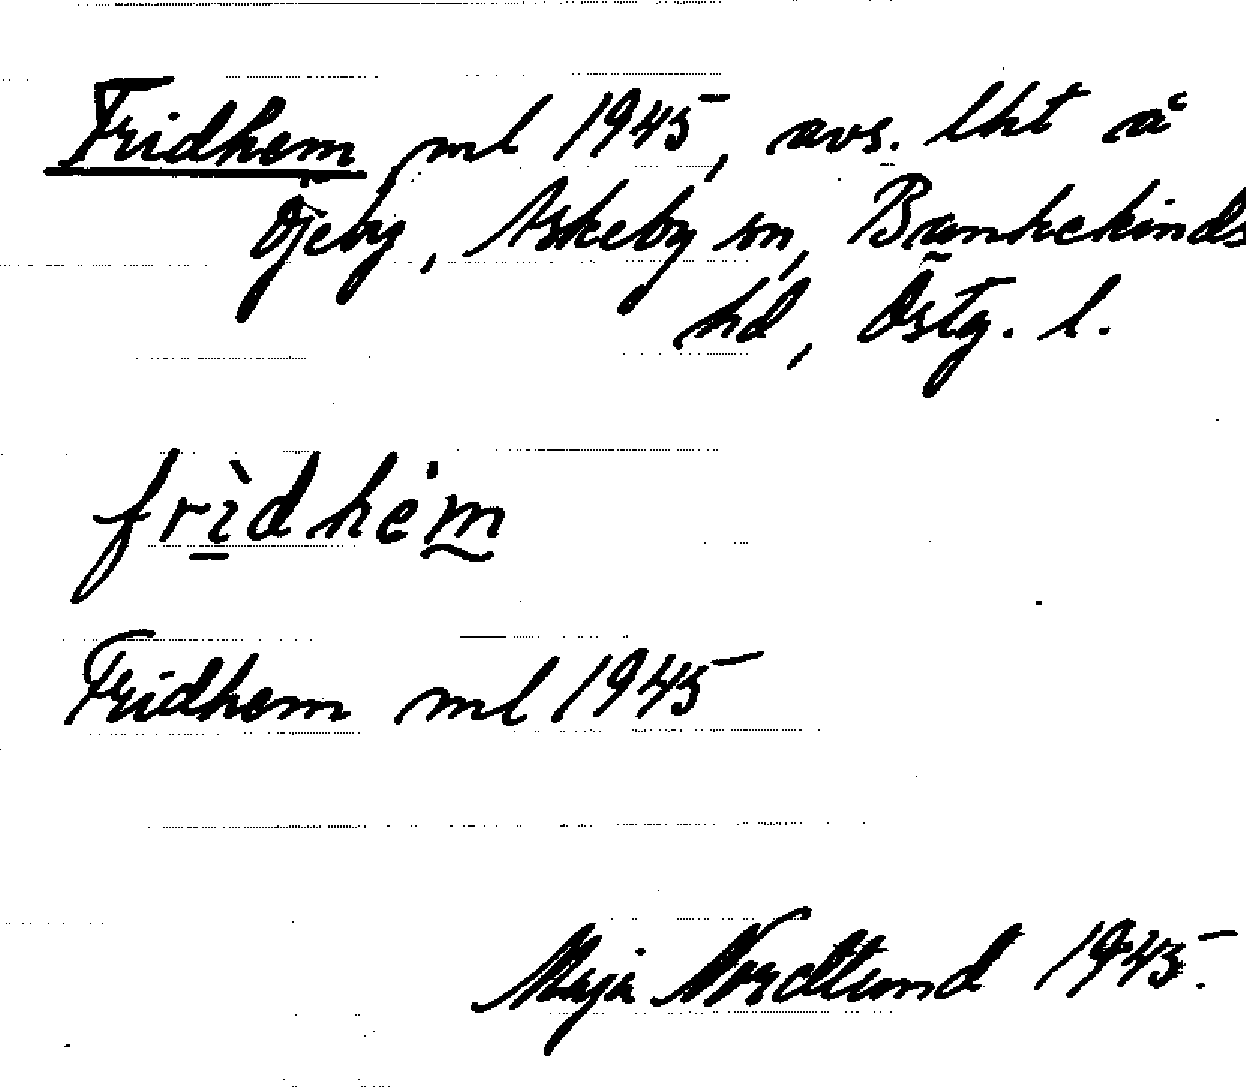 Fridhem ml 1945, avs. lht å
Öjeby, Askeby sn, Bankekinds
hd, Östg. l.
frìdhem
Fridhem ml 1945
Maja Nordlund 1945.